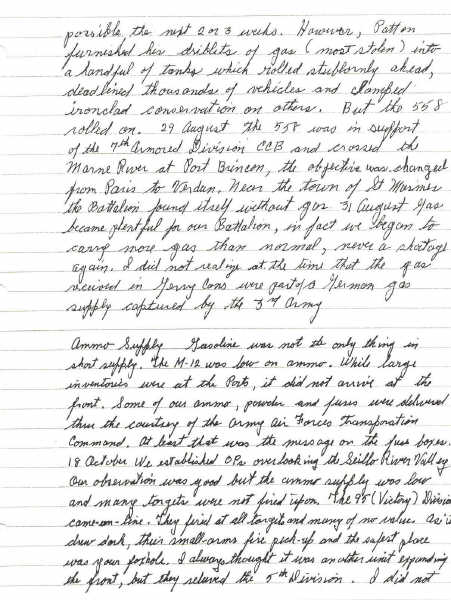 possible, the next 2 or 3 weeks. However, Patton
furnished his driblets of gas (most stolen) into
a handful of tanks which rolled stubbornly ahead,
deadlined thousands of vehicles and clamped
ironclad conservation on others. But the 558
rolled on. 29 August the 558 was in support
of the 7th Armored Division CCB and crossed the
Marne River at Port Brincon, the objective was changed
from Paris to Verdun. Near the town of St Mermer
the Battalion found itself without gas 31 August Gas
became plentful for our Battalion, in fact we began to
carry more gas than normal, never a shotage
again. I did not realize at the time that the gas
received in Jerry Cans were part of a German gas
supply captured by the 3rd Army
Ammo Supply Gasoline was not the only thing in
short supply. The M-12 was low on ammo. While large
inventories were at the Ports, it did not arrive at the
front. Some of our ammo, powder and fuses were delivered
thru the courtesy of the Army Air Forces Transporation
Command. At least that was the message on the fuse boxes.
18 October We established OPs overlooking the Seille River Valley
Our observation was good but the ammo supply was low
and many targets were not fired upon. The 95 (Victory) Division
came-on-line. They fired at all targets and many of no value. As it
drew dark, their small-arms fire pick-up and the safest place
was your foxhole. I always thought it was another unit expanding
the front, but they relieved the 5th Division. I did not